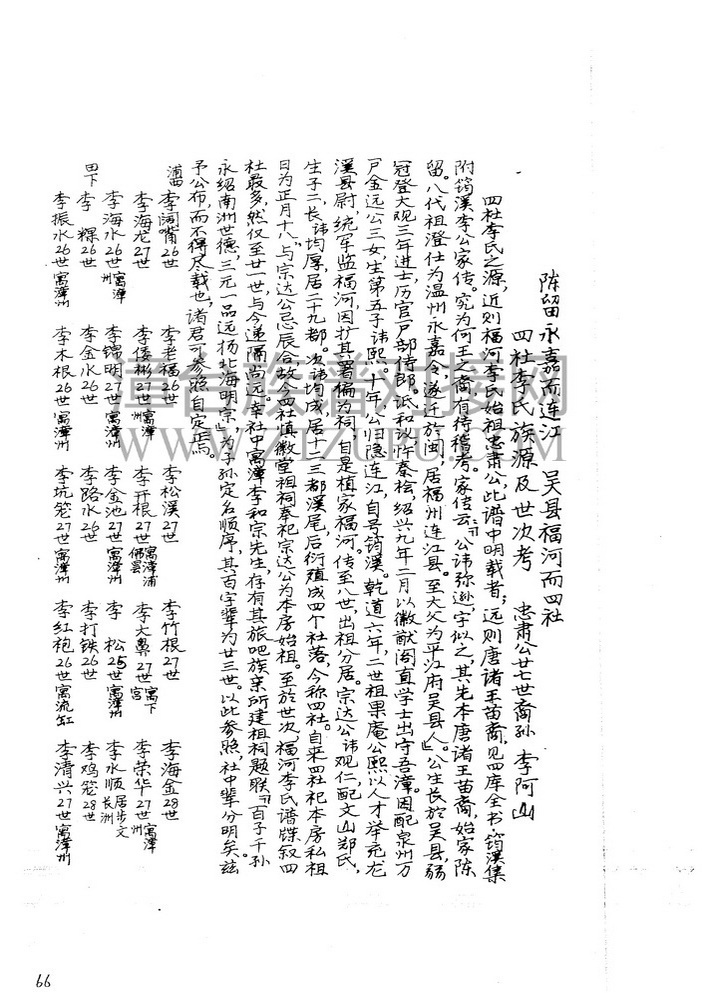 陈留永嘉而连江 吴县福河而四社
四社李氏族源及世次考 忠肃公廿七世裔孙 李阿山
四社李氏之源，近则福河李氏始祖忠肃公，此谱中明载者；远则唐诸王苗裔，见四库全书筠溪集
附筠溪李公家传。究为何王之裔有待稽考。家传云：“公讳弥逊，字似之，其先本唐诸王苗裔，始家陈
留。八代祖澄仕为温州永嘉令，遂迁于闽，居福州连江县。至大父为平江府吴县人”。公生长於吴县，弱
冠登大观三年进士，历官户部侍郎。诋和议忤秦桧，绍兴九年二月以徽猷阁直学士出守吾漳。因配泉州万
户金远公三女，生第五子讳熙。十年，公归隐连江，自号筠溪。乾道六年，二世祖果庵公熙以人才举充龙
溪县尉，统军监福河，因扩其署偏为祠，自是植家福河。传至八世，出祖分居。宗达公讳观仁，配文山郑氏，
生子二，长讳均厚，居二十九都。次讳均成，居十二三都溪尾，后衍殖成四个社落，今称四社。自来四社祀本房私祖
日为正月十八，与宗达公忌辰合，故今四社慎徽堂祖祠奉祀宗达公为本房始祖。至於世次，福河李氏谱牒叙四
社最多，然仅至廿一世，与今递隔尚远。幸社中寓漳李和宗先生，存有其旅吧族亲所建祖祠题联：“百子千孙
永绍南洲世德，三元一品远扬北海明宗”，为子孙定名顺序，其百字辈为廿三世。以此参照，社中辈分明矣。兹
予公布，而不得尽载也，诸君可参照自定焉。
浦西 李阔嘴26世 李老福26世 李松溪27世 李竹根27世 李海金28世
李海龙27世 李倭彬27世寓漳州 李开根27世寓漳浦佛昙 李大鼻27世寓下宫 李荣华27世寓漳州
李海水26世寓漳州 李锦明27世寓漳州 李金池27世寓漳州 李 松25世寓漳州 李永顺居步文长洲
田下 李 粿26世 李金水26世 李路水26世 李打铁26世 李鸡笼28世
李振水26世寓漳州 李木根26世寓漳州 李坑笼27世寓漳州 李红袍26世寓流缸 李清兴27世寓漳州
重台族谱对接网
WWW.ZIZUPU.COM
66